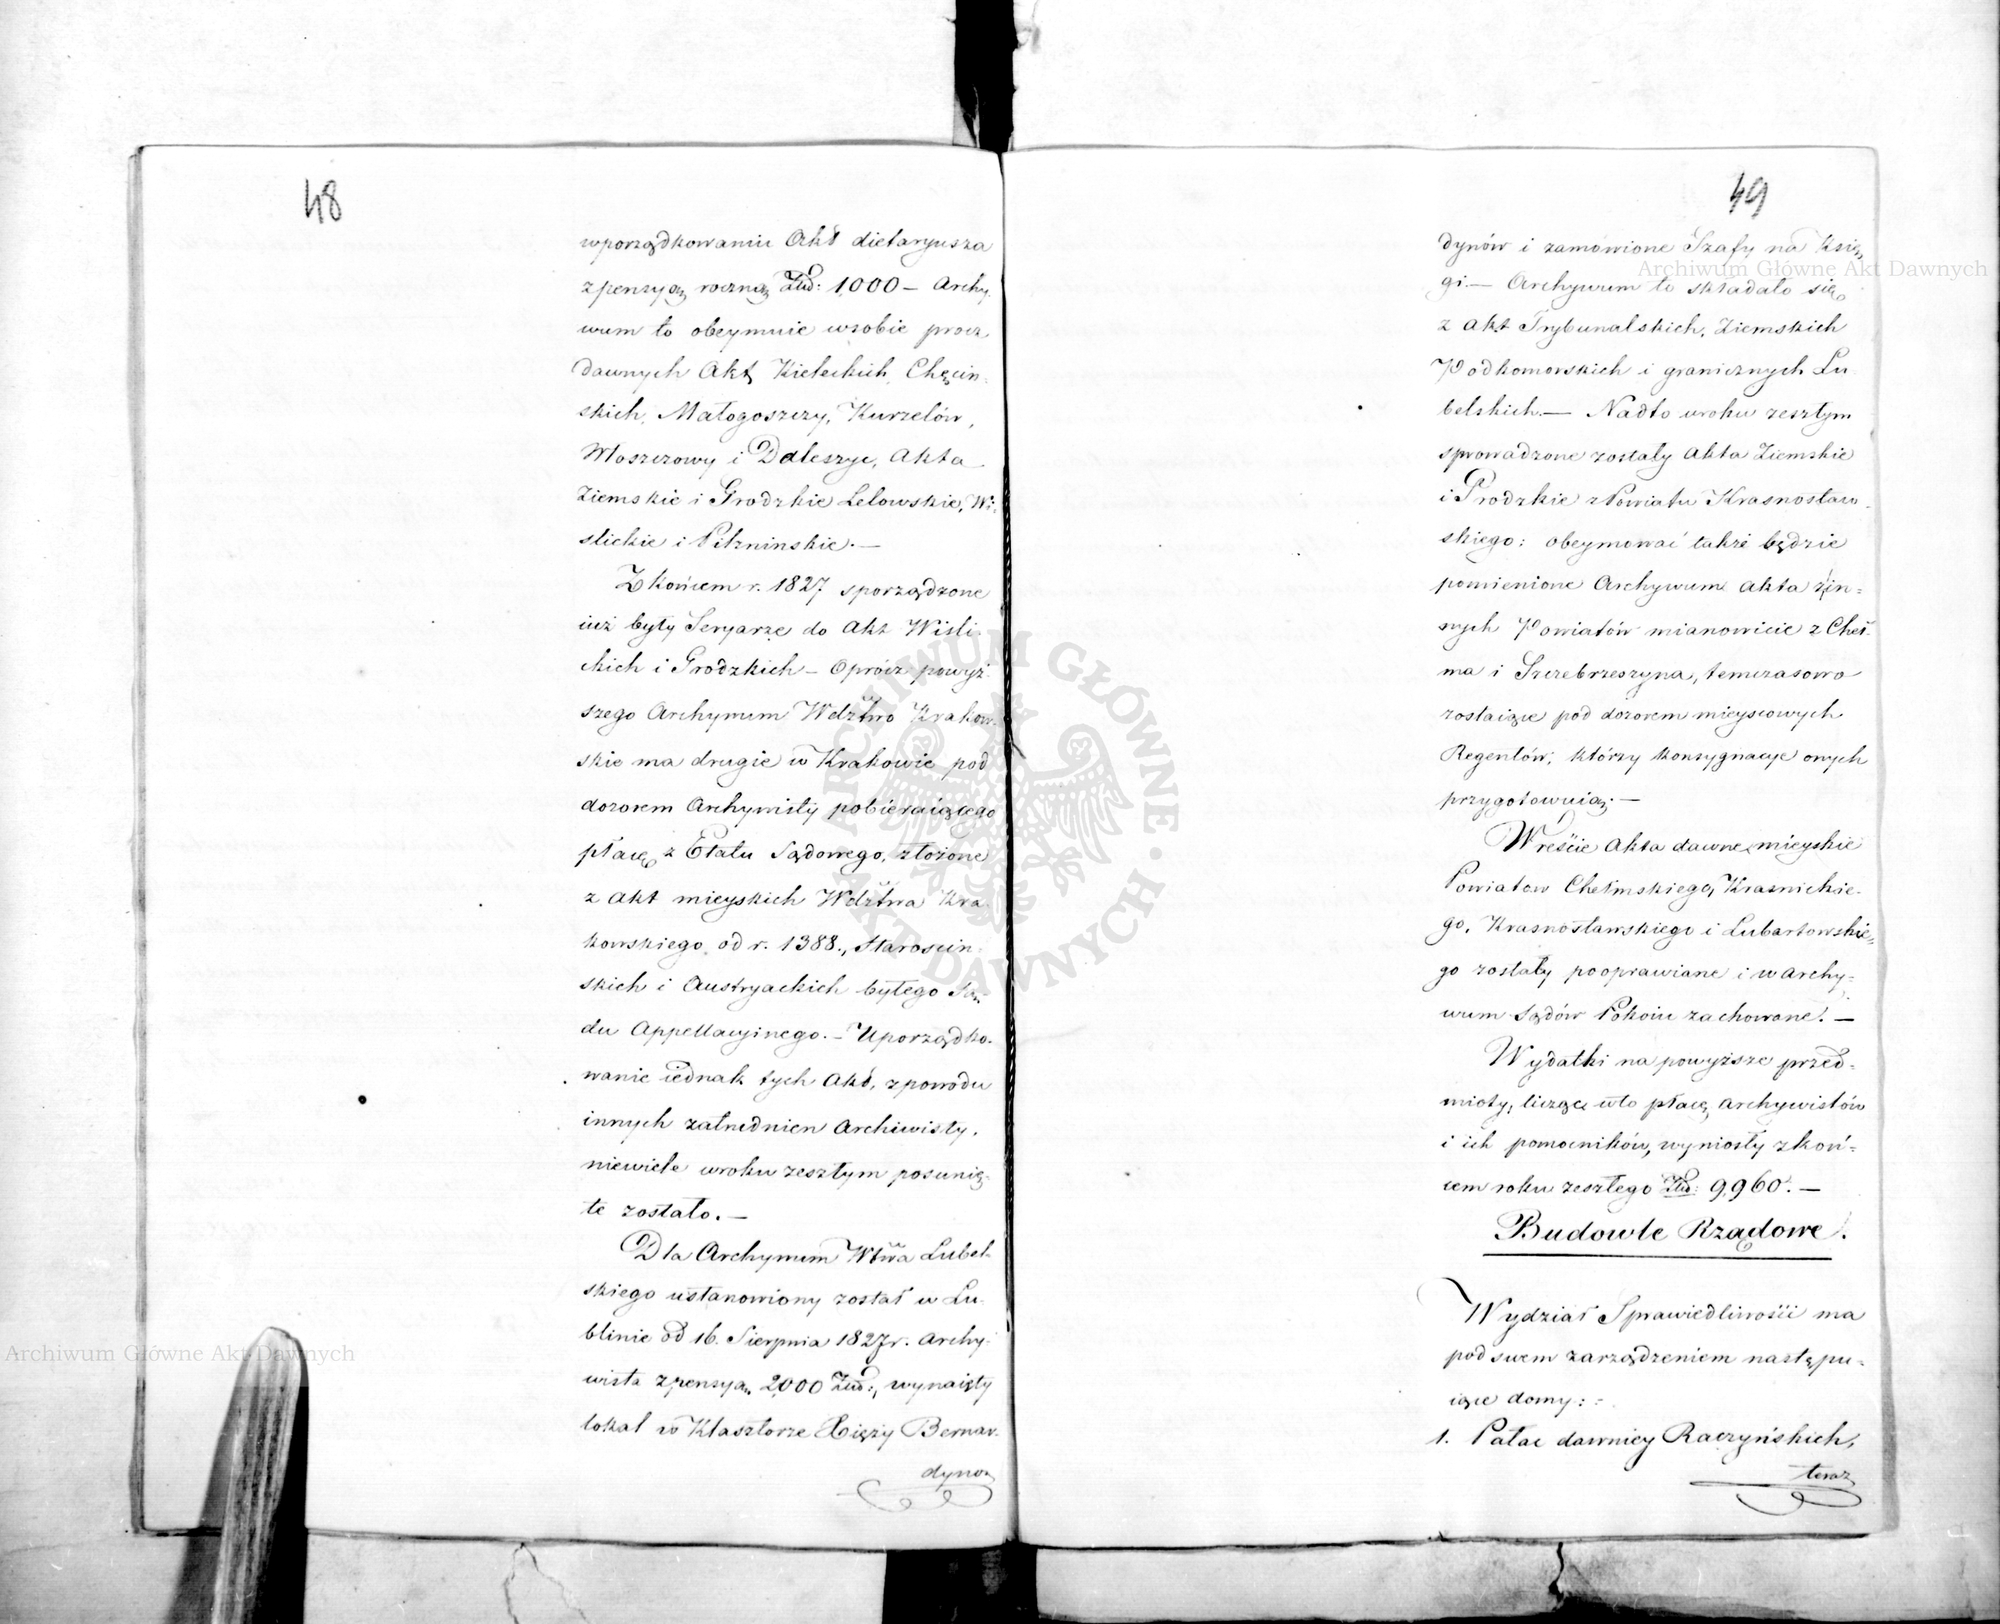 48
wporządkowaniu Akt dietaryusza
z pensyą roczną Złt: 1,000 – Archy-
wum to obeymuie wsobie procz
dawnych Akt Kieleckich, Chęcin-
skich, Małogoszczy, Kurzelów,
Włoszczowy i Daleszyc, Akta
Ziemskie i Grodzkie Lelowskie, Wi-
slickie i Pilzninskie. —
Z końcem r. 1827 sporządzone
iuż były Seryarze do Akt Wisli-
ckich i Grodzkich – Oprócz powyż-
szego Archywum Wdztwo Krakow-
skie ma drugie w Krakowie pod
dozorem Archywisty pobieraiącego
płacę z Etatu Sądowego, złożone
z Akt mieyskich Wdztwa Kra-
kowskiego od r. 1388., Staroscin-
skich i Austryackich byłego Są-
du Appellacyinego. – Uporządko-
wanie iednak tych Akt, z powodu
innych zatrudnien Archiwisty,
niewiele wroku zeszłym posunię-
te zostało. —
Dla Archywum Wtwa Lubel-
skiego ustanowiony został w Lu-
blinie od 16. Sierpnia 1827 r. Archy-
wista z pensyą 2,000 Złt:, wynaięty
lokal w Klasztorze Xięży Bernar-
dynow
49
dynów i zamówione Szafy na Xsię-
gi. — Archywum to składało się
z Akt Trybunalskich, Ziemskich
Podkomorskich i granicznych Lu-
belskich. — Nadto wroku zeszłym
sprowadzone zostały Akta Ziemskie
i Grodzkie z Powiatu Krasnostaw-
skiego: obeymować także będzie
pomienione Archywum Akta z in-
nych Powiatów mianowicie z Cheł-
ma i Szczebrzeszyna, temczasowo
zostaiące pod dozorem mieyscowych
Regentów, którzy konsygnacye onych
przygotowuią. —
Wreście Akta dawne mieyskie
Powiatow Chełmskiego, Krasnickie-
go, Krasnostawskiego i Lubartowskie-
go zostały pooprawiane i w Archy-
wum Sądów Pokoiu zachowane. —
Wydatki na powyższe przed-
mioty, licząc wto płacę Archywistów
i ich pomocników, wyniosły z koń-
cem roku zeszłego Złt: 9,960. —
Budowle Rządowe.
Wydział Sprawiedliwości ma
pod swem zarządzeniem następu-
iące domy: -
1. Pałac dawniey Raczyńskich,
teraz
Archiwum Główne Akt Dawnych
Archiwum Główne Akt Dawnych
ARCHIWUM GŁÓWNE AKT DAWNYCH